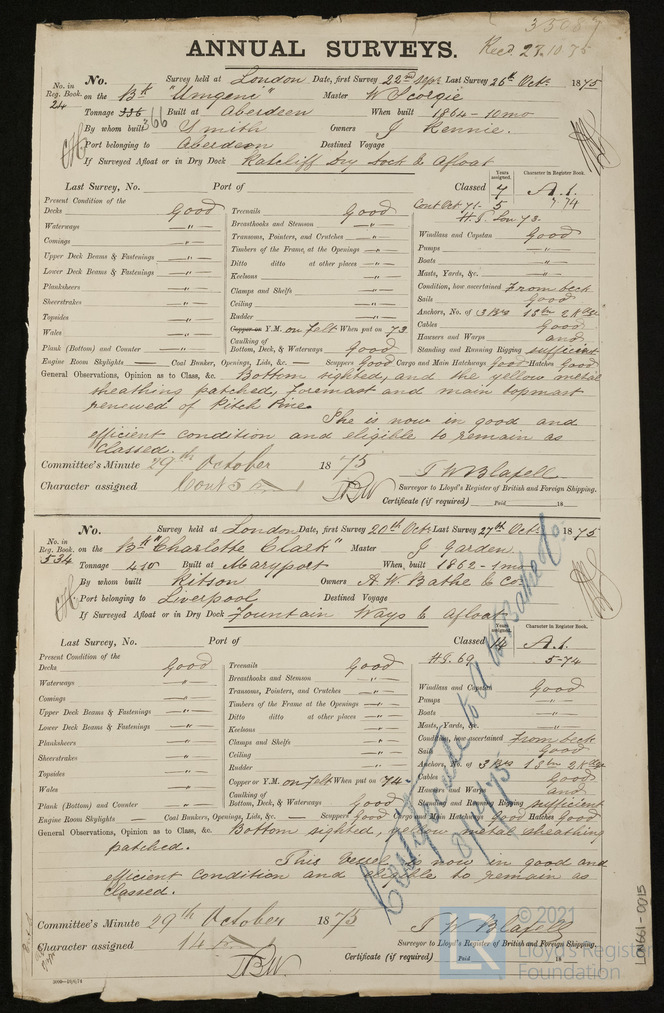 35087
ANNUAL SURVEYS.
Recd. 27.10.75
No. in Reg. Book. 24
No. Survey held at London Date, first Survey 22nd Sepr Last Survey 26th Octr 1875
on the Bk "Umgeni" Master W Scorgie
Tonnage 336 366 Built at Aberdeen When built 1864-10mo
By whom built Smith Owners J Rennie.
Port belonging to Aberdeen Destined Voyage
If Surveyed Afloat or in Dry Dock Ratcliff Dry Dock & Afloat
Years assigned. Character in Register Book.
Last Survey, No. Port of Classed 7 A.1.
Cont Oct 71-5 7.74
H.S. Lon 73.
Present Condition of the
Decks Good Treenails Good
Waterways — „ — Breasthooks and Stemson — „ — Windlass and Capstan Good
Comings — „ — Transoms, Pointers, and Crutches — „ — Pumps — „ —
Upper Deck Beams & Fastenings — „ — Timbers of the Frame, at the Openings — „ — Boats — „ —
Lower Deck Beams & Fastenings — „ — Ditto ditto at other places — „ — Masts, Yards, &c. — „ —
Planksheers — „ — Keelsons — „ — Condition, how ascertained From deck
Sheerstrakes — „ — Clamps and Shelfs — „ — Sails Good
Topsides — „ — Ceiling — „ — Anchors, No. of 3 Brs 1 Stm 2 Kedge
Wales — „ — Rudder — „ — Cables Good
Copper or Y.M. on Felt When put on 73 Hawsers and Warps and
Plank (Bottom) and Counter — „ — Caulking of Bottom, Deck, & Waterways Good Standing and Running Rigging sufficient
Engine Room Skylights — Coal Bunker, Openings, Lids, &c. — Scuppers Good Cargo and Main Hatchways Good Hatches Good
General Observations, Opinion as to Class, &c. Bottom sighted, and the yellow metal
sheathing patched, Foremast and main topmast
renewed of Pitch Pine.
She is now in good and
efficient condition and eligible to remain as
Classed.
Committee's Minute 29th October 1875
Character assigned Cont 5
Surveyor to Lloyd's Register of British and Foreign Shipping.
Certificate (if required) Paid 18
No. in Reg. Book. 534
No. Survey held at London Date, first Survey 20th Octr Last Survey 27th Octr 1875
on the Bk "Charlotte Clark" Master J Garden.
Tonnage 410 Built at Maryport When built 1862-1mo
By whom built Ritson Owners A.W. Bathe & Co
Port belonging to Liverpool Destined Voyage
If Surveyed Afloat or in Dry Dock Fountain Ways & Afloat
Years assigned. Character in Register Book.
Last Survey, No. Port of Classed 14 A.1.
H.S. 69 5-74
Present Condition of the
Decks Good Treenails Good
Waterways — „ — Breasthooks and Stemson — „ — Windlass and Capstan Good
Comings — „ — Transoms, Pointers, and Crutches — „ — Pumps — „ —
Upper Deck Beams & Fastenings — „ — Timbers of the Frame at the Openings — „ — Boats — „ —
Lower Deck Beams & Fastenings — „ — Ditto ditto at other places — „ — Masts, Yards, &c. — „ —
Planksheers — „ — Keelsons — „ — Condition, how ascertained From deck
Sheerstrakes — „ — Clamps and Shelfs — „ — Sails Good
Topsides — „ — Ceiling — „ — Anchors, No. of 3 Brs 1 Stm 2 Kdge
Wales — „ — Rudder — „ — Cables Good
Copper or Y.M. on Felt When put on 74. Hawsers and Warps and
Plank (Bottom) and Counter — „ — Caulking of Bottom, Deck, & Waterways Good Standing and Running Rigging sufficient
Engine Room Skylights — Coal Bunkers, Openings, Lids, &c. — Scuppers Good Cargo and Main Hatchways Good Hatches Good
General Observations, Opinion as to Class, &c. Bottom sighted, yellow metal sheathing
patched.
This Vessel is now in good and
efficient condition and eligible to remain as
Classed.
Certificate to A W Bathe & Co
Committee's Minute 29th October 1875
Character assigned 14
Surveyor to Lloyd's Register of British and Foreign Shipping.
Certificate (if required) Paid 18
LON661-0015
© 2021
Lloyd's Register
Foundation